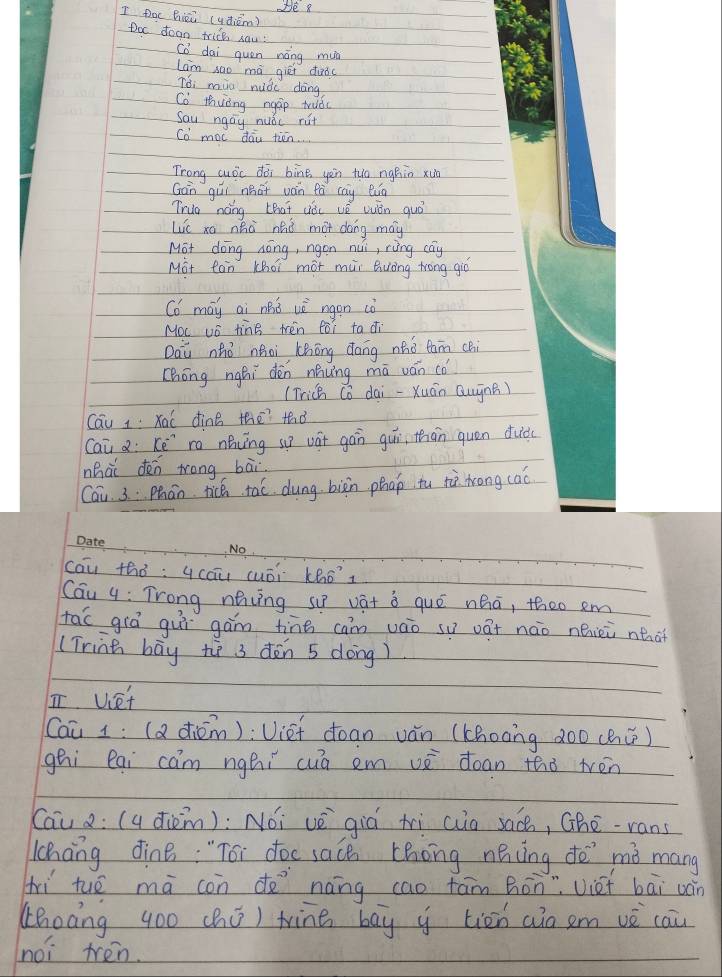 Đề 8
I Đọc hiểu (4 điểm)
Đọc đoạn trích sau:
Cỏ dại quen nắng mưa
Làm sao mà giết được
Tới mùa nước dâng
Cỏ thường ngập trước
Sau ngày nước rút
Cỏ mọc đầu tiên...
Trong cuộc đời bình yên tựa nghìn xưa
Gần gũi nhất vẫn là cây lúa
Trưa nắng khát ước về vườn quả
Lúc xa nhà nhớ một dáng mây
Một dòng sông, ngọn núi, rừng cây
Một làn khói một mùi hương trong gió
Có mấy ai nhớ về ngọn cỏ
Mọc vô tình trên lối ta đi
Dẫu nhỏ nhoi không đáng nhớ làm chi
Không nghĩ đến nhưng mà vẫn có
(Trích Cỏ dại - Xuân Quỳnh)
Câu 1: Xác định thể thơ
Câu 2: Kể ra những sự vật gần gũi, thân quen được
nhắc đến trong bài.
Câu 3: Phân tích tác dụng biện pháp tu từ trong các
Date No
câu thơ: 4 câu cuối khổ 1
Câu 4: Trong những sự vật ở quê nhà, theo em
tác giả gửi gắm tình cảm vào sự vật nào nhiều nhất
(Trình bày từ 3 đến 5 dòng)
II Viết
Câu 1: (2 điểm): Viết đoạn văn (khoảng 200 chữ)
ghi lại cảm nghĩ của em về đoạn thơ trên
Câu 2: (4 điểm): Nói về giá trị của sách, Ghê-rans
khẳng định: "Tôi đọc sách không những để mở mang
trí tuệ mà còn để nâng cao tâm hồn". Viết bài văn
(khoảng 400 chữ) trình bày ý kiến của em về câu
nói trên.